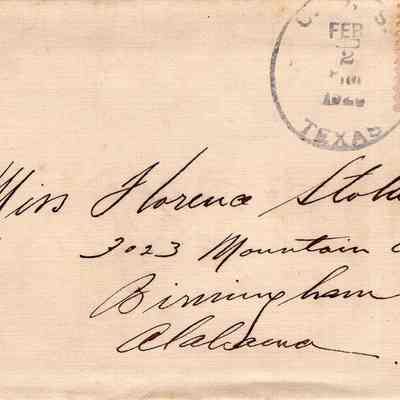 FEB
2
PM
TEXAS
Miss Florence
3023 Mountain
Birmingham
Alabama